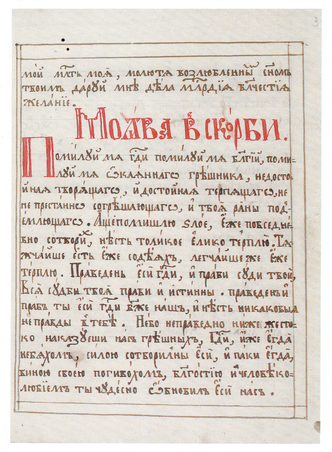 мой мл҃ть моя, молютѧ возлюбленныⷨ сн҃омъ
твоимъ даруй мнѣ дѣла мл҃рдїѧ бл҃гчестїѧ
желанїе.
Моли́ва в скорби.
Помилуй мѧ гдⷭ҇и помилуй мѧ бл҃гїй, поми-
луй мѧ ѡкаѧннаго грѣшника, недосто
йнаѧ творѧщаго, и достойнаѧ терпѧщаго, не
престанно согрѣшающаго, и твоѧ раны подъ
емлющаго. Аще помышлю ѕлое, еже повседне
вно сотвори, нѣсть толикое елико терплю. Тѧ
жчайше есть еже содѣѧхъ, легчайше же еже
терплю. Праведенъ еси гдⷭ҇и, и прави суди твои,
всѧ судбы твоѧ прави и истинны. праведенъ и
правъ ты еси гдⷭ҇и бж҃е нашъ, и нѣсть никакоѧ
неправды в тебѣ. Небо неправедно ниже жесто
ко наказуеши насъ грѣшныхъ, гдⷭ҇и, иже егда
небѧхомъ, силою сотворилъ ны еси, и паки егда
виною своею погибохомъ, бл҃гостїю и человѣко
любїемъ ты чудесно ѡбновилъ еси насъ.